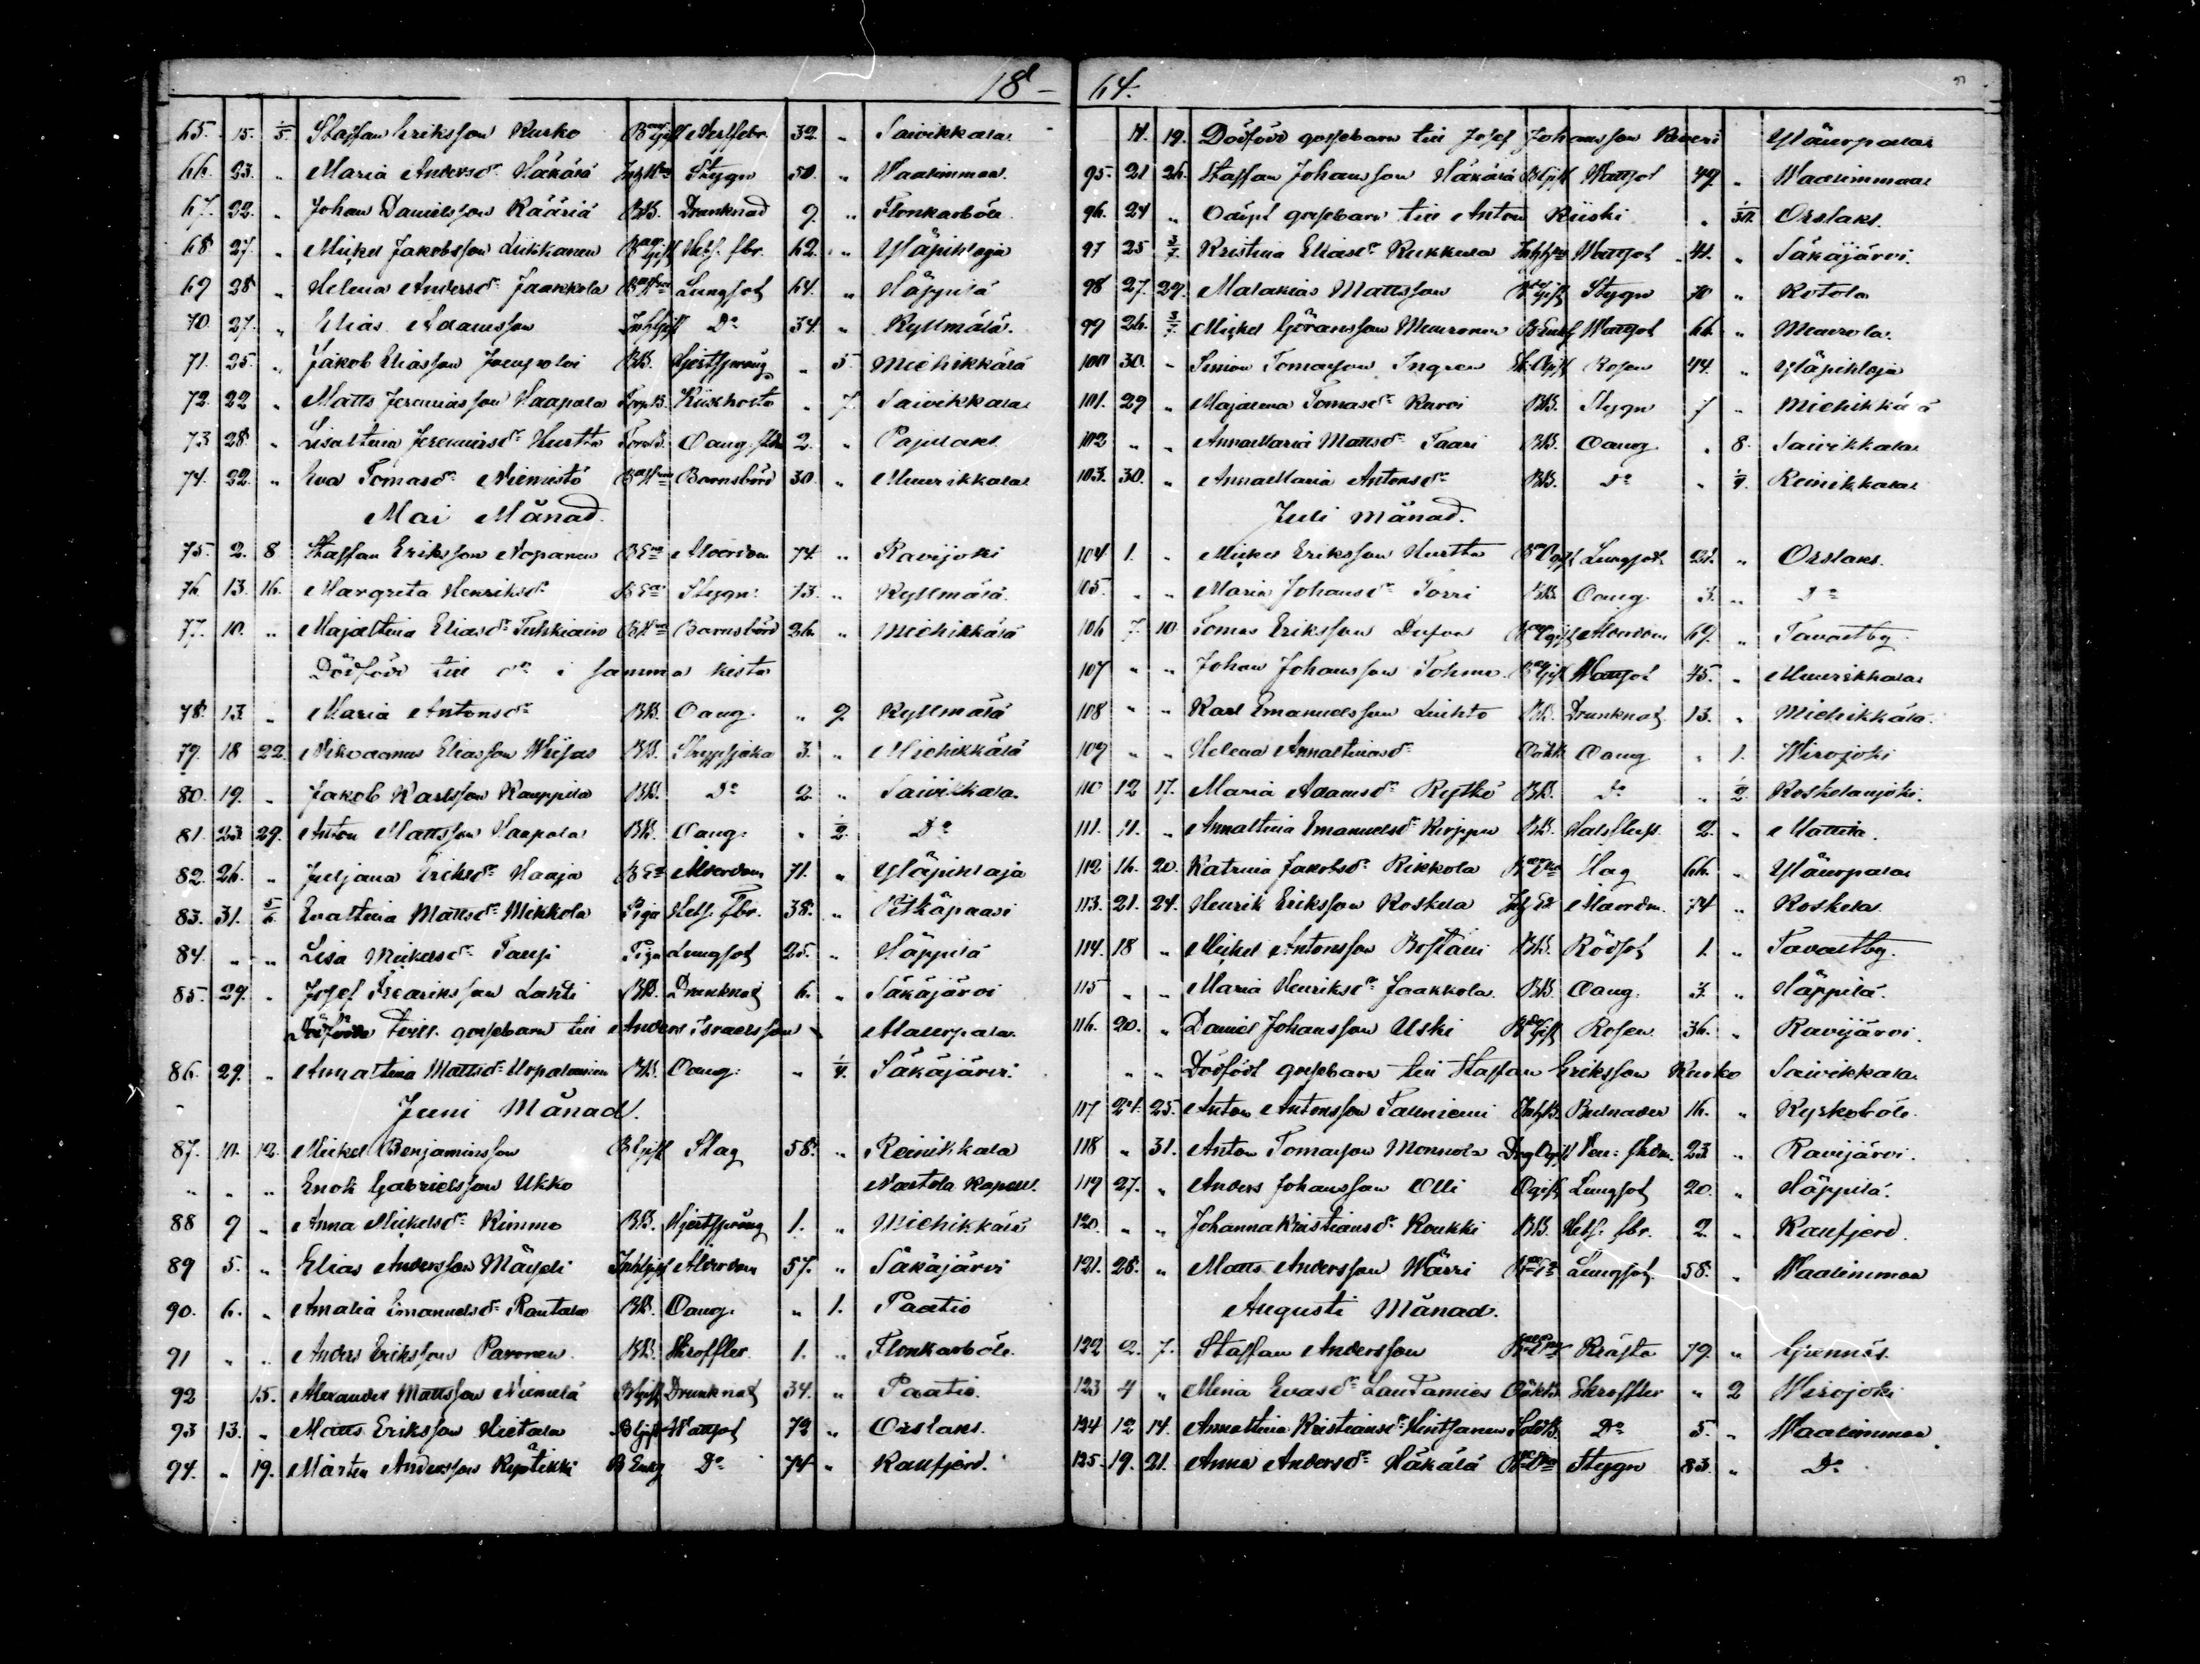 18 – 64.
65. 15. 1/5. Staffan Eriksson Kurko Nerffebr. 32. „ Saivikkala
66. 23. „ Maria Andersdr Häkälä Inh Stygn 50. „ Waalimmaa
67. 22. „ Johan Danielsson Kääriä BB. Drunknad 9. „ Flonkarböle
68 27. „ Mickel Jakobsson Liikkanen Gift Hets. fbr. 62. „ Yläpihlaja
69 28 „ Helena Andersdr Jaakkola Lungsot 64. „ Häppilä
70. 27. „ Elias Adamsson Inh Gift Do 34. „ Kyllmälä.
71. 25. „ Jakob Eliasson BB. Hjertsprång „ 5 Miehikkälä
72. 22 „ Matts Jeremiasson Haapala Kikhosta „ 7. Saivikkala
73 28. „ Lisastina Jeremiasdr Hurtta Oang. 2. „ Pajulaks
74. 22. „ Eva Tomasdr Niemistö Barnsbörd 30. „ Muurikkala
Mai Månad.
75. 2. 8 Staffan Eriksson Nopanen Ålderdom 74. „ Ravijoki
76. 13. 16. Margreta Henriksdr Stygn: 73. „ Kyllmälä.
77. 10. „ Majastina Eliasdr Tuhkiain Barnsbörd 36. „ Miehikkälä
Dödfödt till do i samma kista
78. 13. „ Maria Antonsdr BB. Oang. „ 9. Kyllmälä
79. 18 22. Nikodemus Eliasson Wiisas BB. Strypsjuka 3. „ Miehikkälä
80. 19. „ Jakob Karlsson Kauppila BB. Do 2. „ Saivikkala.
81. 23. 29. Anton Mattsson Haapala BB. Oang. „ 1/2. Do
82. 26. „ Juljana Eriksdr Haaja Ålderdom 71. „ Yläpihlaja
83. 31. 5/6. Evastina Mattsdr Mikkola Piga Hets. fbr. 38. „ Pitkäpaasi
84. „ „ Lisa Mickelsdr Tausi Piga Lungsot 25. „ Häppilä
85. 29. „ Josef Fredriksson Lahti BB. Drunknad 6. „ Säkäjärvi
Dödfödde gossebarn till Anders Israelsson Alaurpala.
86. 29. „ Annastina Mattsdr Urpalainen BB. Oang: „ 1/4. Säkäjärvi.
Juni Månad.
87. 10. 12. Mickel Benjaminsson B Gift Slag 58. „ Reinikkala
„ „ „ Enok Gabrielsson Ukko Nastola kapell.
88 9 „ Anna Mickelsdr Kimmo BB. Hjertsprång 1. „ Miehikkälä
89 5. „ Elias Andersson Mäyski Inh Gift Ålderdom 57. „ Säkäjärvi
90. 6. „ Amalia Emanuelsdr Rantala BB. Oang. „ 1. Paatio
91 „ „ Anders Eriksson Paronen BB. Skroffler. 1. „ Flonkarböle.
92 15. Alexander Mattsson Niemelä B Gift Drunknad 34. „ Paatio.
93 13. „ Matts Eriksson Hietala B Gift Wattsot 72 „ Orslaks.
94. „ 19. Mårten Andersson B Enkg Do 74 „ Kaufjerd.
11. 19. Dödfödt gossebarn till Josef Johansson Yläurpala
95. 21 26. Staffan Johansson Häkälä B Gift Wattsot 49. „ Waalimmaa
96. 24 „ Odöpt gossebarn till Anton Kiiski „ 1/30. Orslaks.
97 25 3/7. Kristina Eliasdr Kukkela Wattsot 41. „ Säkäjärvi.
98 27. 29. Malakias Mattsson Stygn 70 „ Kotola
99 26. 3/7. Mickel Göransson Muuronen B Enkg Wattsot 66. „ Muurola.
100 30. „ Simon Tomasson Ingren Rosen 44. „ Yläpihlaja
101. 29 „ Majalena Tomasdr Karvi BB. Stygn 7 „ Miehikkälä
102 „ „ Annamaria Mattsdr Taari BB. Oang. „ 8. Saivikkala
103. 30. „ Annamaria Antonsdr BB. Do „ 1/4. Reinikkala
Juli Månad.
104 1. „ Mickel Eriksson Hurtta Lungsot. 21. „ Orslaks.
105. „ „ Maria Johansdr Torri BB. Oang. 3. „ Do
106 7. 10 Tomas Eriksson Dufva Ålderdom 69. „ Tavastby
107 „ „ Johan Johansson Tohmo Gift Wattsot 45. „ Muurikkala
108 „ „ Karl Emanuelsson Luihto BB. Drunknad 13. „ Miehikkälä.
109 „ „ Helena Annastinasdr Oäkta Oang „ 1. Wirojoki
110 12 17. Maria Adamsdr Rytkö BB. Do „ 1/2. Koskelanjoki.
111. 11. „ Annastina Emanuelsdr Kirppu BB. Halsfluss. 2. „ Mattila.
112 16. 20. Katrina Jakobsdr Rikkola Slag 66. „ Yläurpala
113. 21. 24. Henrik Eriksson Koskela Ålderdm. 74 „ Koskela.
114. 18 „ Mickel Antonsson BB. Rödsot 1. „ Tavastby.
115 „ „ Maria Henriksdr Jaakkola. BB. Oang. 3. „ Häppilä.
116. 20. „ Daniel Johansson Uski Gift Rosen 36. „ Ravijärvi.
„ „ Dödfödt gossebarn till Staffan Eriksson Kurko Saivikkala
117 24. 25. Anton Antonsson Tauniemi Bulnader 16. „ Kyrkoböle.
118 „ 31. Anton Tomasson Monnola 23 „ Ravijärvi.
119 27. „ Anders Johansson Olli Ogift Lungsot 20. „ Häppilä.
120. „ „ Johanna Kristiansdr Koukki BB. Hets. fbr. 2. „ Kaufjerd.
121. 28. „ Matts Andersson Wärri Lungsot. 58. „ Waalimmaa
Augusti Månad.
122 2. 7. Staffan Andersson Kräfta 79. „ Grennäs.
123 4 „ Mina Evasdr Lautamies Oäkta Skroffler „ 2 Wirojoki
124 12 14. Annastina Kristiansdr Hintsanen Do 5. „ Waalimmaa
125. 19. 21. Anna Andersdr Häkälä Stygn 83. „ Do